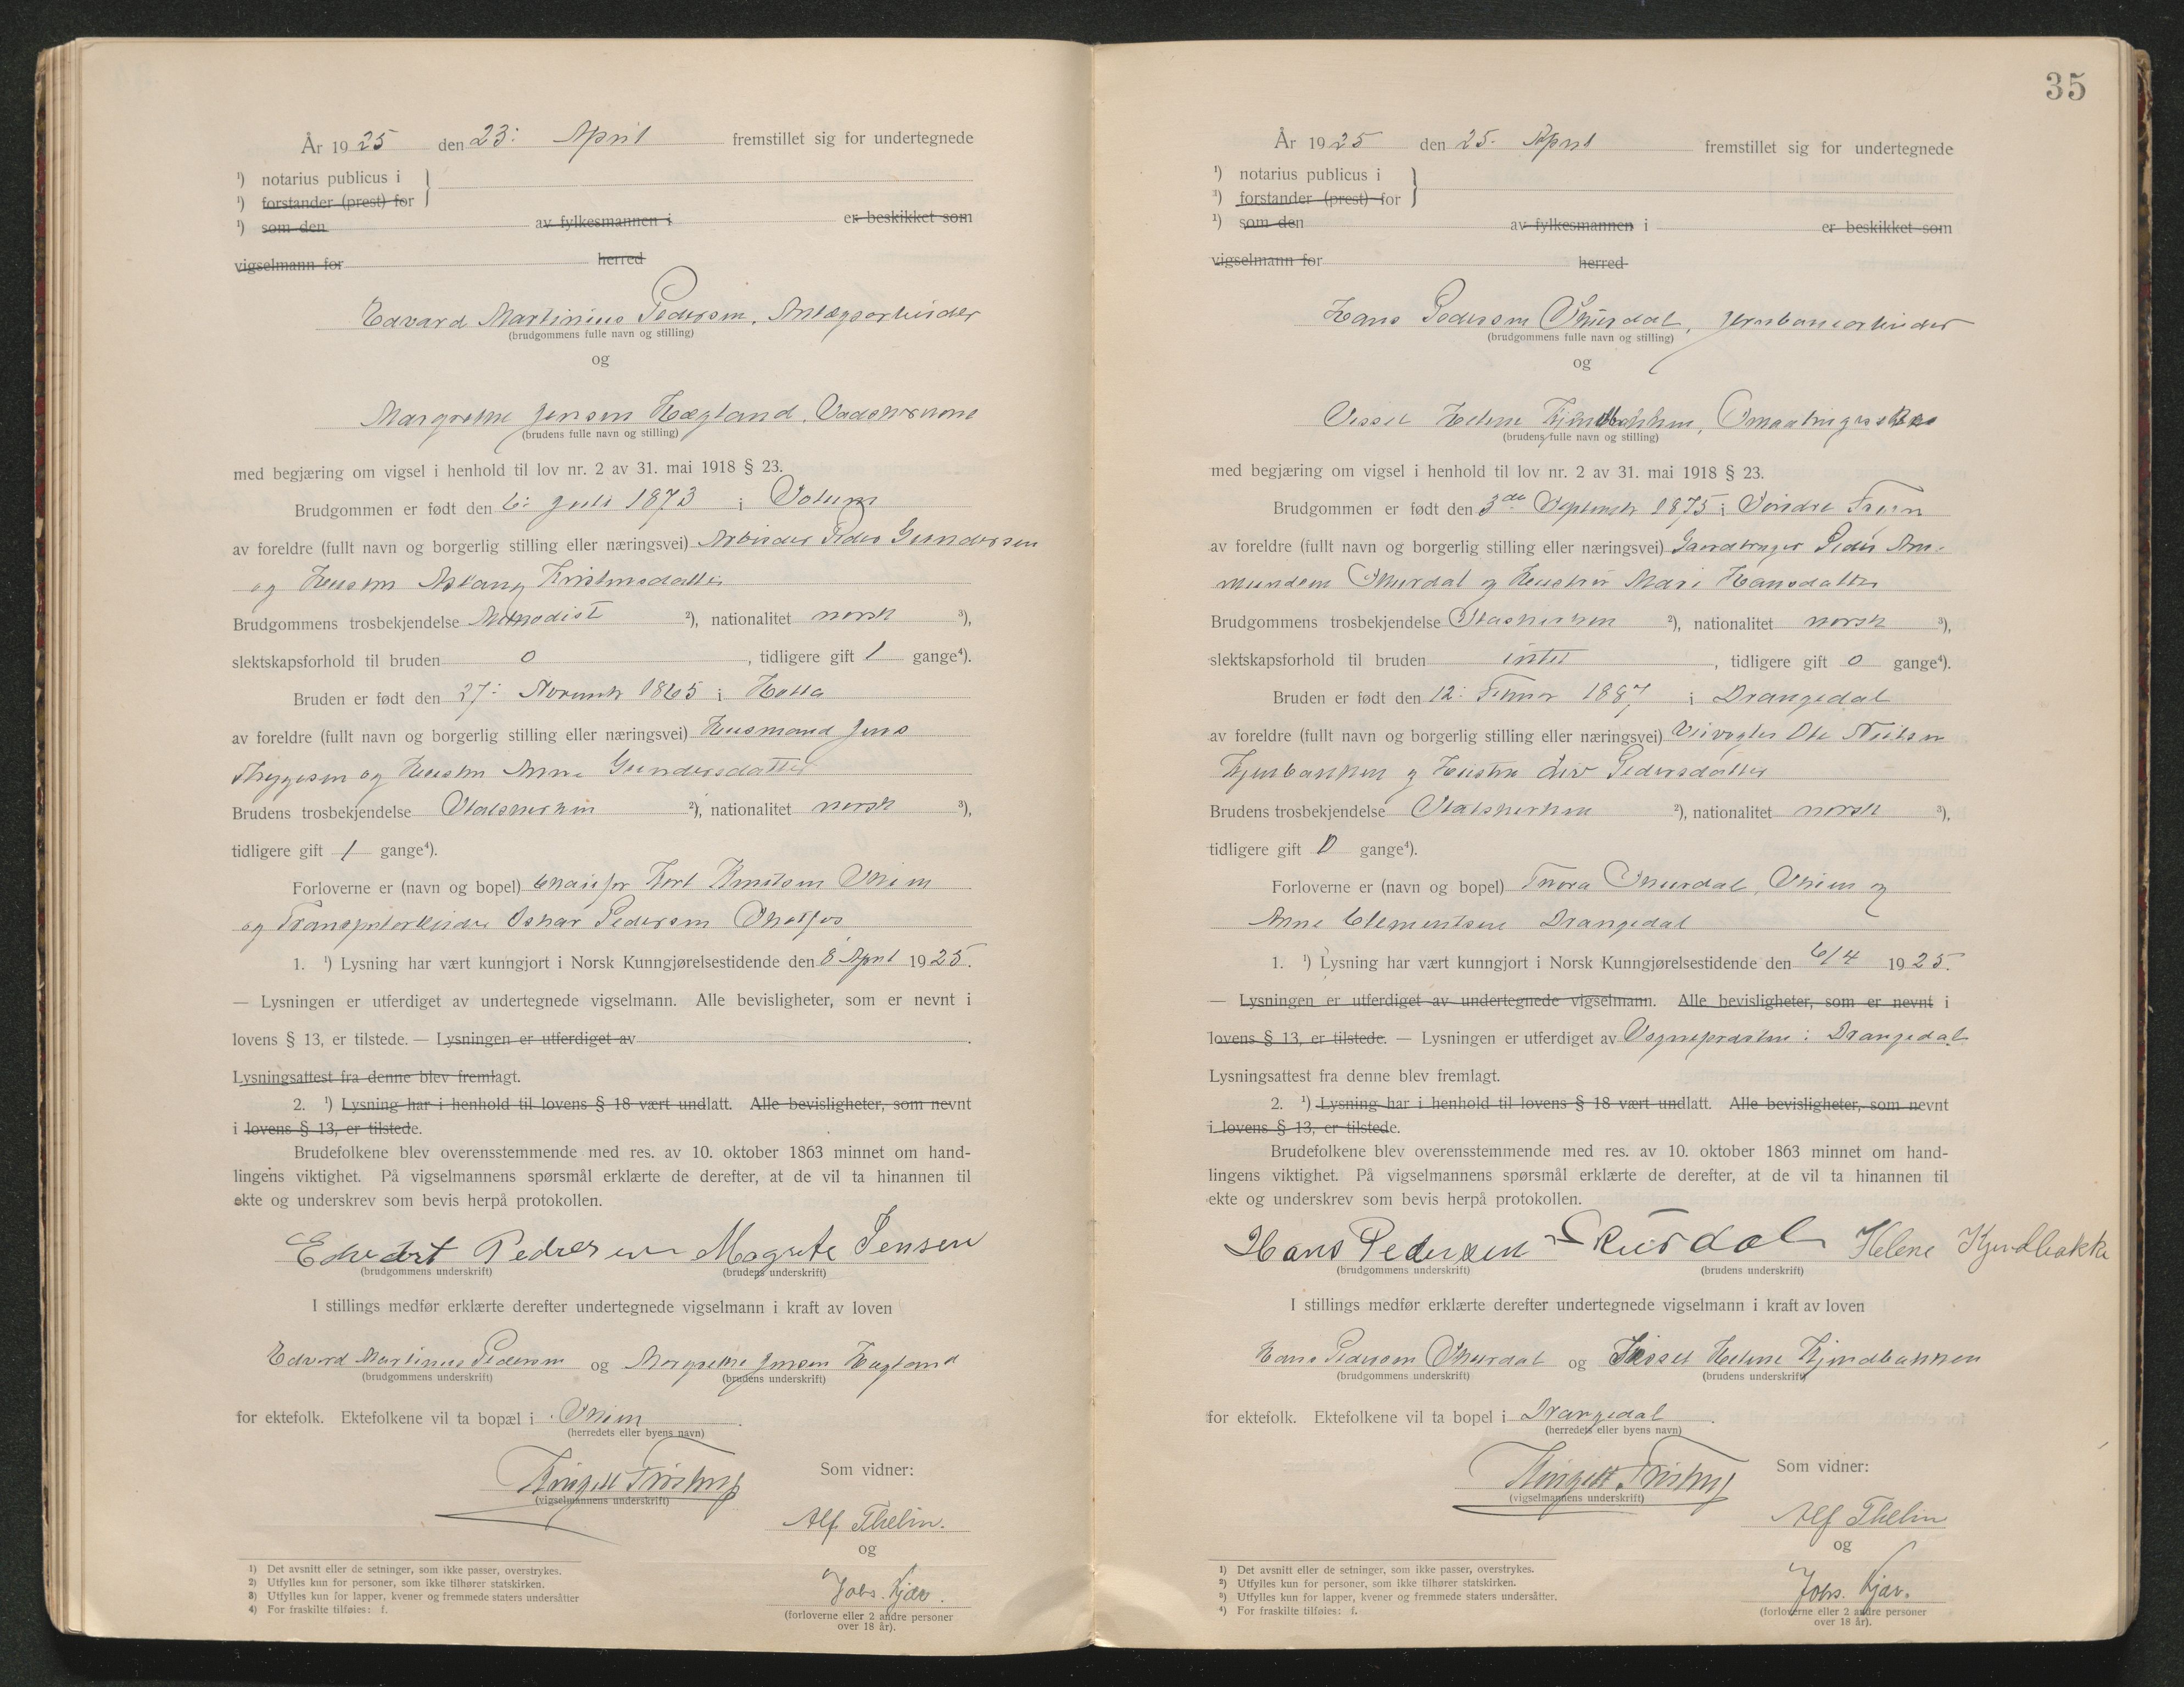 År 1925 den 23: April fremstillet sig for undertegnede
¹) notarius publicus i
¹) forstander (prest) for
¹) som den av fylkesmannen i er beskikket som
vigselmann for herred
Edvard Martinius Pedersen, Anlægsarbeider
(brudgommens fulle navn og stilling)
og
Margrethe Jensen Hægland,
(brudens fulle navn og stilling)
med begjæring om vigsel i henhold til lov nr. 2 av 31. mai 1918 § 23.
Brudgommen er født den 6: Juli 1873 i Solum
av foreldre (fullt navn og borgerlig stilling eller næringsvei) Arbeider Peder Gundersen
og Hustru Aslaug Kristensdatter
Brudgommens trosbekjendelse Methodist ²), nationalitet norsk ³),
slektskapsforhold til bruden 0, tidligere gift 1 gange⁴).
Bruden er født den 27: Novemb 1865 i Holla
av foreldre (fullt navn og borgerlig stilling eller næringsvei) Husmand Jens
Thygesen og Hustru Anne Gundersdatter
Brudens trosbekjendelse Statskirken ²), nationalitet norsk ³),
tidligere gift 1 gange⁴).
Forloverne er (navn og bopel) Chaufør Karl Knutsen Skien
og Transportarbeider Oskar Pedersen Skotfos
1. ¹) Lysning har vært kunngjort i Norsk Kunngjørelsestidende den 8 April 1925.
— Lysningen er utferdiget av undertegnede vigselmann. Alle bevisligheter, som er nevnt i
lovens § 13, er tilstede. — Lysningen er utferdiget av .
Lysningsattest fra denne blev fremlagt.
2. ¹) Lysning har i henhold til lovens § 18 vært undlatt. Alle bevisligheter, som nevnt
i lovens § 13, er tilstede.
Brudefolkene blev overensstemmende med res. av 10. oktober 1863 minnet om hand-
lingens viktighet. På vigselmannens spørsmål erklærte de derefter, at de vil ta hinannen til
ekte og underskrev som bevis herpå protokollen.
Edvart Pedersen Magrete Jensen
(brudgommens underskrift) (brudens underskrift)
I stillings medfør erklærte derefter undertegnede vigselmann i kraft av loven
Edvard Martinius Pedersen og Margrethe Jensen Hægland
(brudgommens underskrift) (brudens underskrift)
for ektefolk. Ektefolkene vil ta bopæl i Skien.
(herredets eller byens navn)
(vigselmannens underskrift)
Som vidner:
Alf Thelin.
og
Johs. Kjær.
(forloverne eller 2 andre personer
over 18 år).
1) Det avsnitt eller de setninger, som ikke passer, overstrykes.
2) Utfylles kun for personer, som ikke tilhører statskirken.
3) Utfylles kun for lapper, kvener og fremmede staters undersåtter
4) For fraskilte tilføies: f.
35
År 1925 den 25. April fremstillet sig for undertegnede
¹) notarius publicus i
¹) forstander (prest) for
¹) som den av fylkesmannen i er beskikket som
vigselmann for herred
Hans Pedersen Skurdal, Jernbanearbeider
(brudgommens fulle navn og stilling)
og
Sissel Helene Kjendbakken,
(brudens fulle navn og stilling)
med begjæring om vigsel i henhold til lov nr. 2 av 31. mai 1918 § 23.
Brudgommen er født den 3de Septemb 1875 i Söndre Fron
av foreldre (fullt navn og borgerlig stilling eller næringsvei) Gaardbruger Peder Am-
mundsen Skurdal og Hustru Mari Hansdatter
Brudgommens trosbekjendelse Statskirken ²), nationalitet norsk ³),
slektskapsforhold til bruden intet, tidligere gift 0 gange⁴).
Bruden er født den 12: Februar 1887 i Drangedal
av foreldre (fullt navn og borgerlig stilling eller næringsvei) Veivogter Ole Neilsen
Kjenbakken og Hustru Liv Pedersdatter
Brudens trosbekjendelse Statskirken ²), nationalitet norsk ³),
tidligere gift 0 gange⁴).
Forloverne er (navn og bopel) Thora Skurdal, Skien og
Anne Clementsen Drangedal
1. ¹) Lysning har vært kunngjort i Norsk Kunngjørelsestidende den 6/4 1925.
— Lysningen er utferdiget av undertegnede vigselmann. Alle bevisligheter, som er nevnt i
lovens § 13, er tilstede. — Lysningen er utferdiget av Sognepresten i Drangedal.
Lysningsattest fra denne blev fremlagt.
2. ¹) Lysning har i henhold til lovens § 18 vært undlatt. Alle bevisligheter, som nevnt
i lovens § 13, er tilstede.
Brudefolkene blev overensstemmende med res. av 10. oktober 1863 minnet om hand-
lingens viktighet. På vigselmannens spørsmål erklærte de derefter, at de vil ta hinannen til
ekte og underskrev som bevis herpå protokollen.
Hans Pedersen Skurdal Helene Kjendbakke
(brudgommens underskrift) (brudens underskrift)
I stillings medfør erklærte derefter undertegnede vigselmann i kraft av loven
Hans Pedersen Skurdal og Sissel Helene Kjendbakken
(brudgommens underskrift) (brudens underskrift)
for ektefolk. Ektefolkene vil ta bopel i Drangedal.
(herredets eller byens navn)
(vigselmannens underskrift)
Som vidner:
Alf Thelin
og
Johs. Kjær.
(forloverne eller 2 andre personer
over 18 år).
¹) Det avsnitt eller de setninger, som ikke passer, overstrykes.
²) Utfylles kun for personer, som ikke tilhører statskirken.
³) Utfylles kun for lapper, kvener og fremmede staters undersåtter.
⁴) For fraskilte tilføies: f.